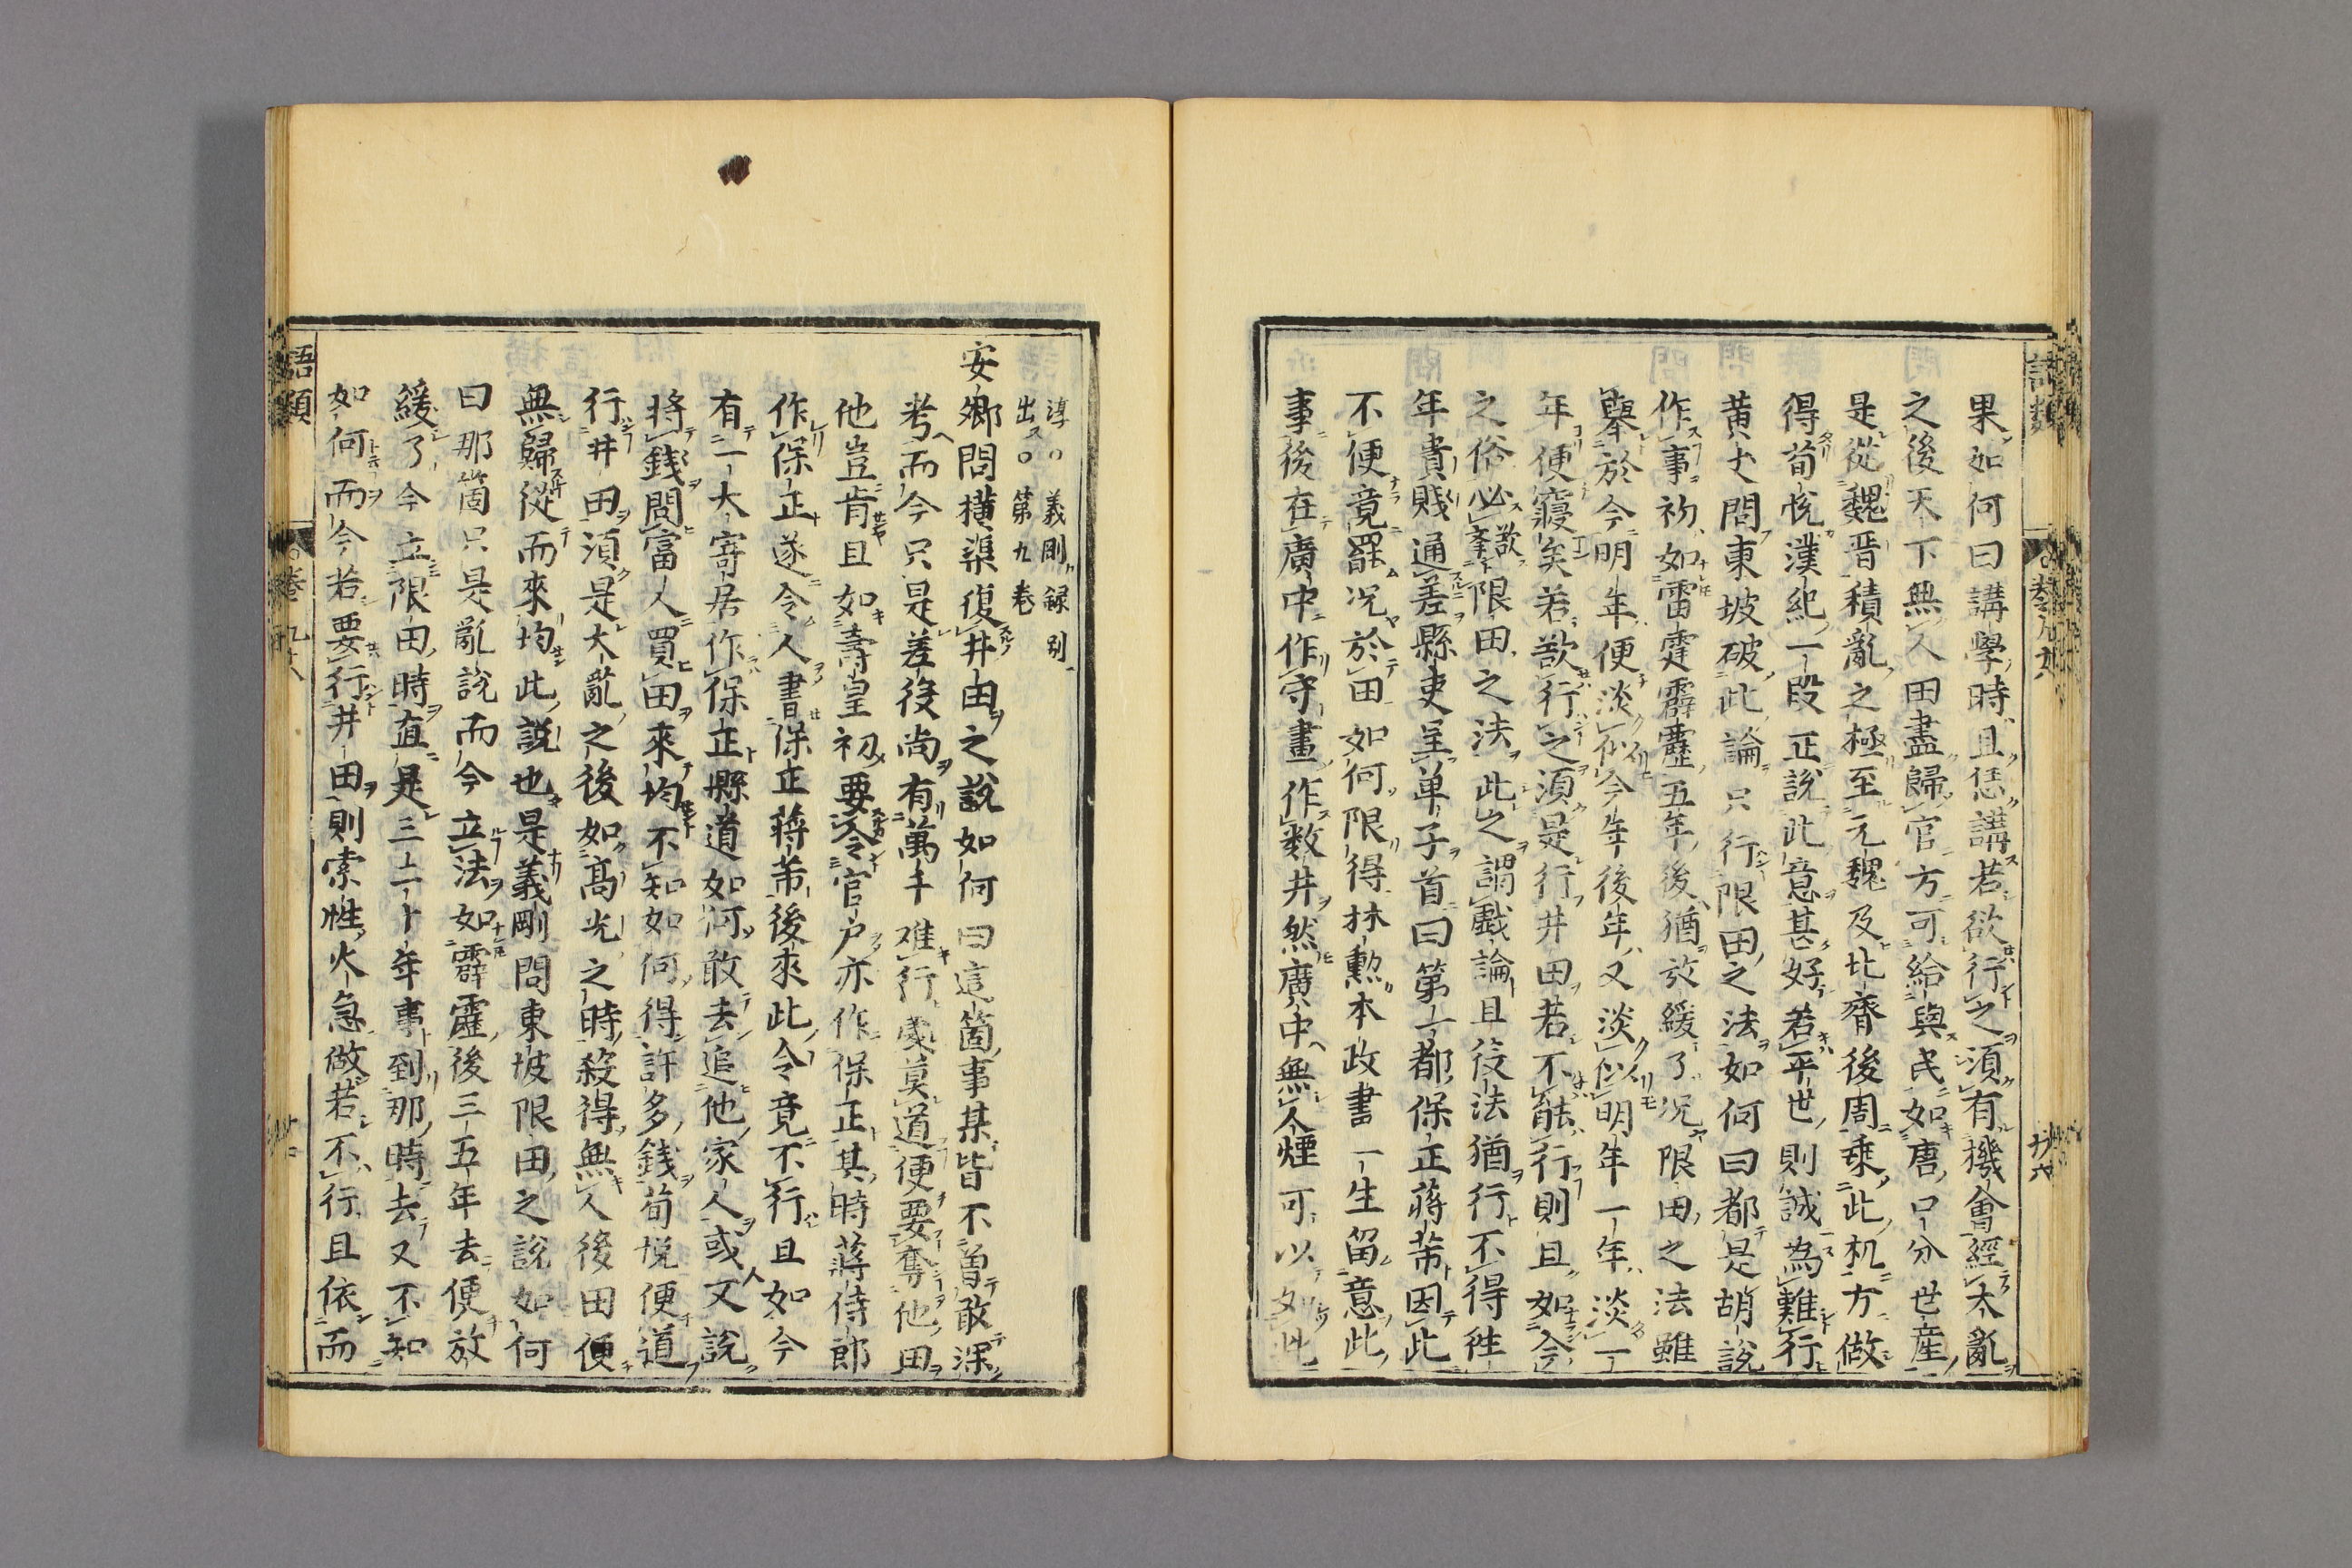 果如何曰講學時且恁講若欲行之須有機會經大亂
之後天下無人田盡歸官方可給與民如唐口分世産
是從魏晋積亂之極至元魏及北齊後周乘此机方做
得荀悦漢紀一段正說此意甚好若平世則誠為難行
黄丈問東坡破此論只行限田之法如何曰都是胡說
作事初如雷霆霹靂五年後猶放緩了况限田之法雖
舉於今明年便淡似今年後年又淡似明年一年淡一
年便寢矣若欲行之須是行井田若不能行則且如今
之俗必欲舉限田之法此之謂戲論且役法猶行不得徃
年貴賤通差縣吏呈單子首曰第一都保正蔣芾因此
不便竟罷况於田如何限得林勲本政書一生留意此
事後在廣中作守畫作数井然廣中無人煙可以如此
淳○義剛録别
出○第九卷
安卿問横渠復井田之說如何曰這箇事某皆不曽敢深
考而今只是差役尚有萬千難行處莫道便要奪他田
他豈肯且如壽皇初要令官户亦作保正其時蔣侍郎
作保正遂令人書保正蔣芾後來此令竟不行且如今
有一大寄居作保正縣道如何敢去追他家人或又說
将錢問富人買田來均不知如何得許多錢荀悦便道
行井田須是大亂之後如髙光之時殺得無人後田便
無歸從而來均此說也是義剛問東坡限田之說如何
曰那箇只是亂說而今立法如霹靂後三五年去便放
緩了今立限田時直是三二十年事到那時去又不知
如何而今若要行井田則索性火急做若不行且依而
語類
卷九十八